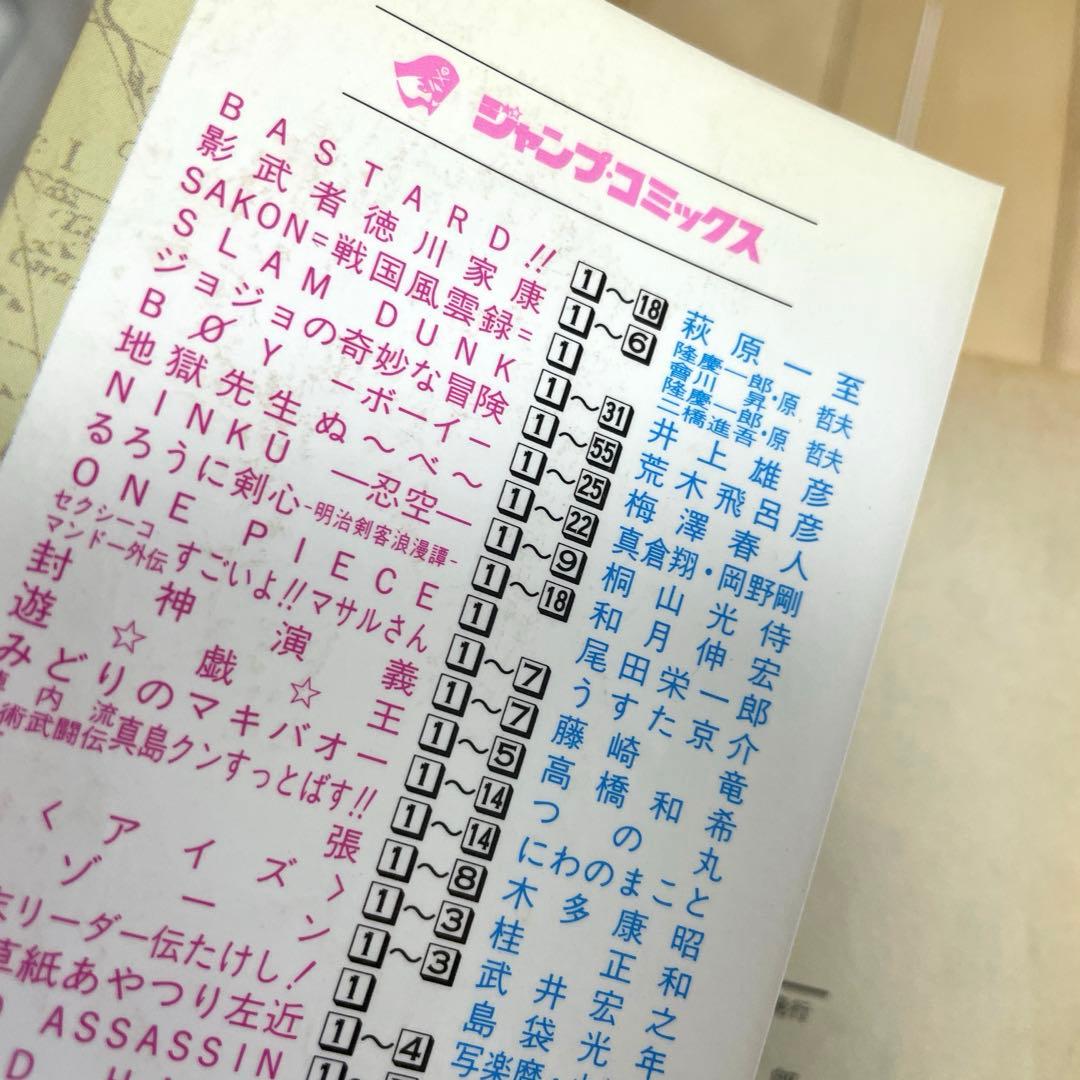 ジャンプ・コミックス
BASTARD!! 1〜18 萩原一至
影武者徳川家康 1〜6 隆慶一郎・原哲夫 會川昇
SAKON=戦国風雲録= 1 隆慶一郎・原哲夫 二橋進吾
SLAM DUNK 1〜31 井上雄彦
ジョジョの奇妙な冒険 1〜55 荒木飛呂彦
BØY―ボーイ― 1〜25 梅澤春人
地獄先生ぬ〜べ〜 1〜22 真倉翔・岡野剛
NINKŪ―忍空― 1〜9 桐山光侍
るろうに剣心-明治剣客浪漫譚- 1〜18 和月伸宏
ONE PIECE 1 尾田栄一郎
セクシーコマンドー外伝すごいよ!!マサルさん 1〜7 うすた京介
封神演義 1〜7 藤崎竜
遊☆戯☆王 1〜5 高橋和希
みどりのマキバオー 1〜14 つの丸
内流 術武闘伝真島クンすっとばす!! 1〜14 にわのまこと
張 1〜8 木多康昭
くアイズ〉 1〜3 桂正和
ゾーン 1〜3 武井宏之
リーダー伝たけし! 1 島袋光年
草紙あやつり左近 1〜4 写楽麿・
ASSASSIN 1〜